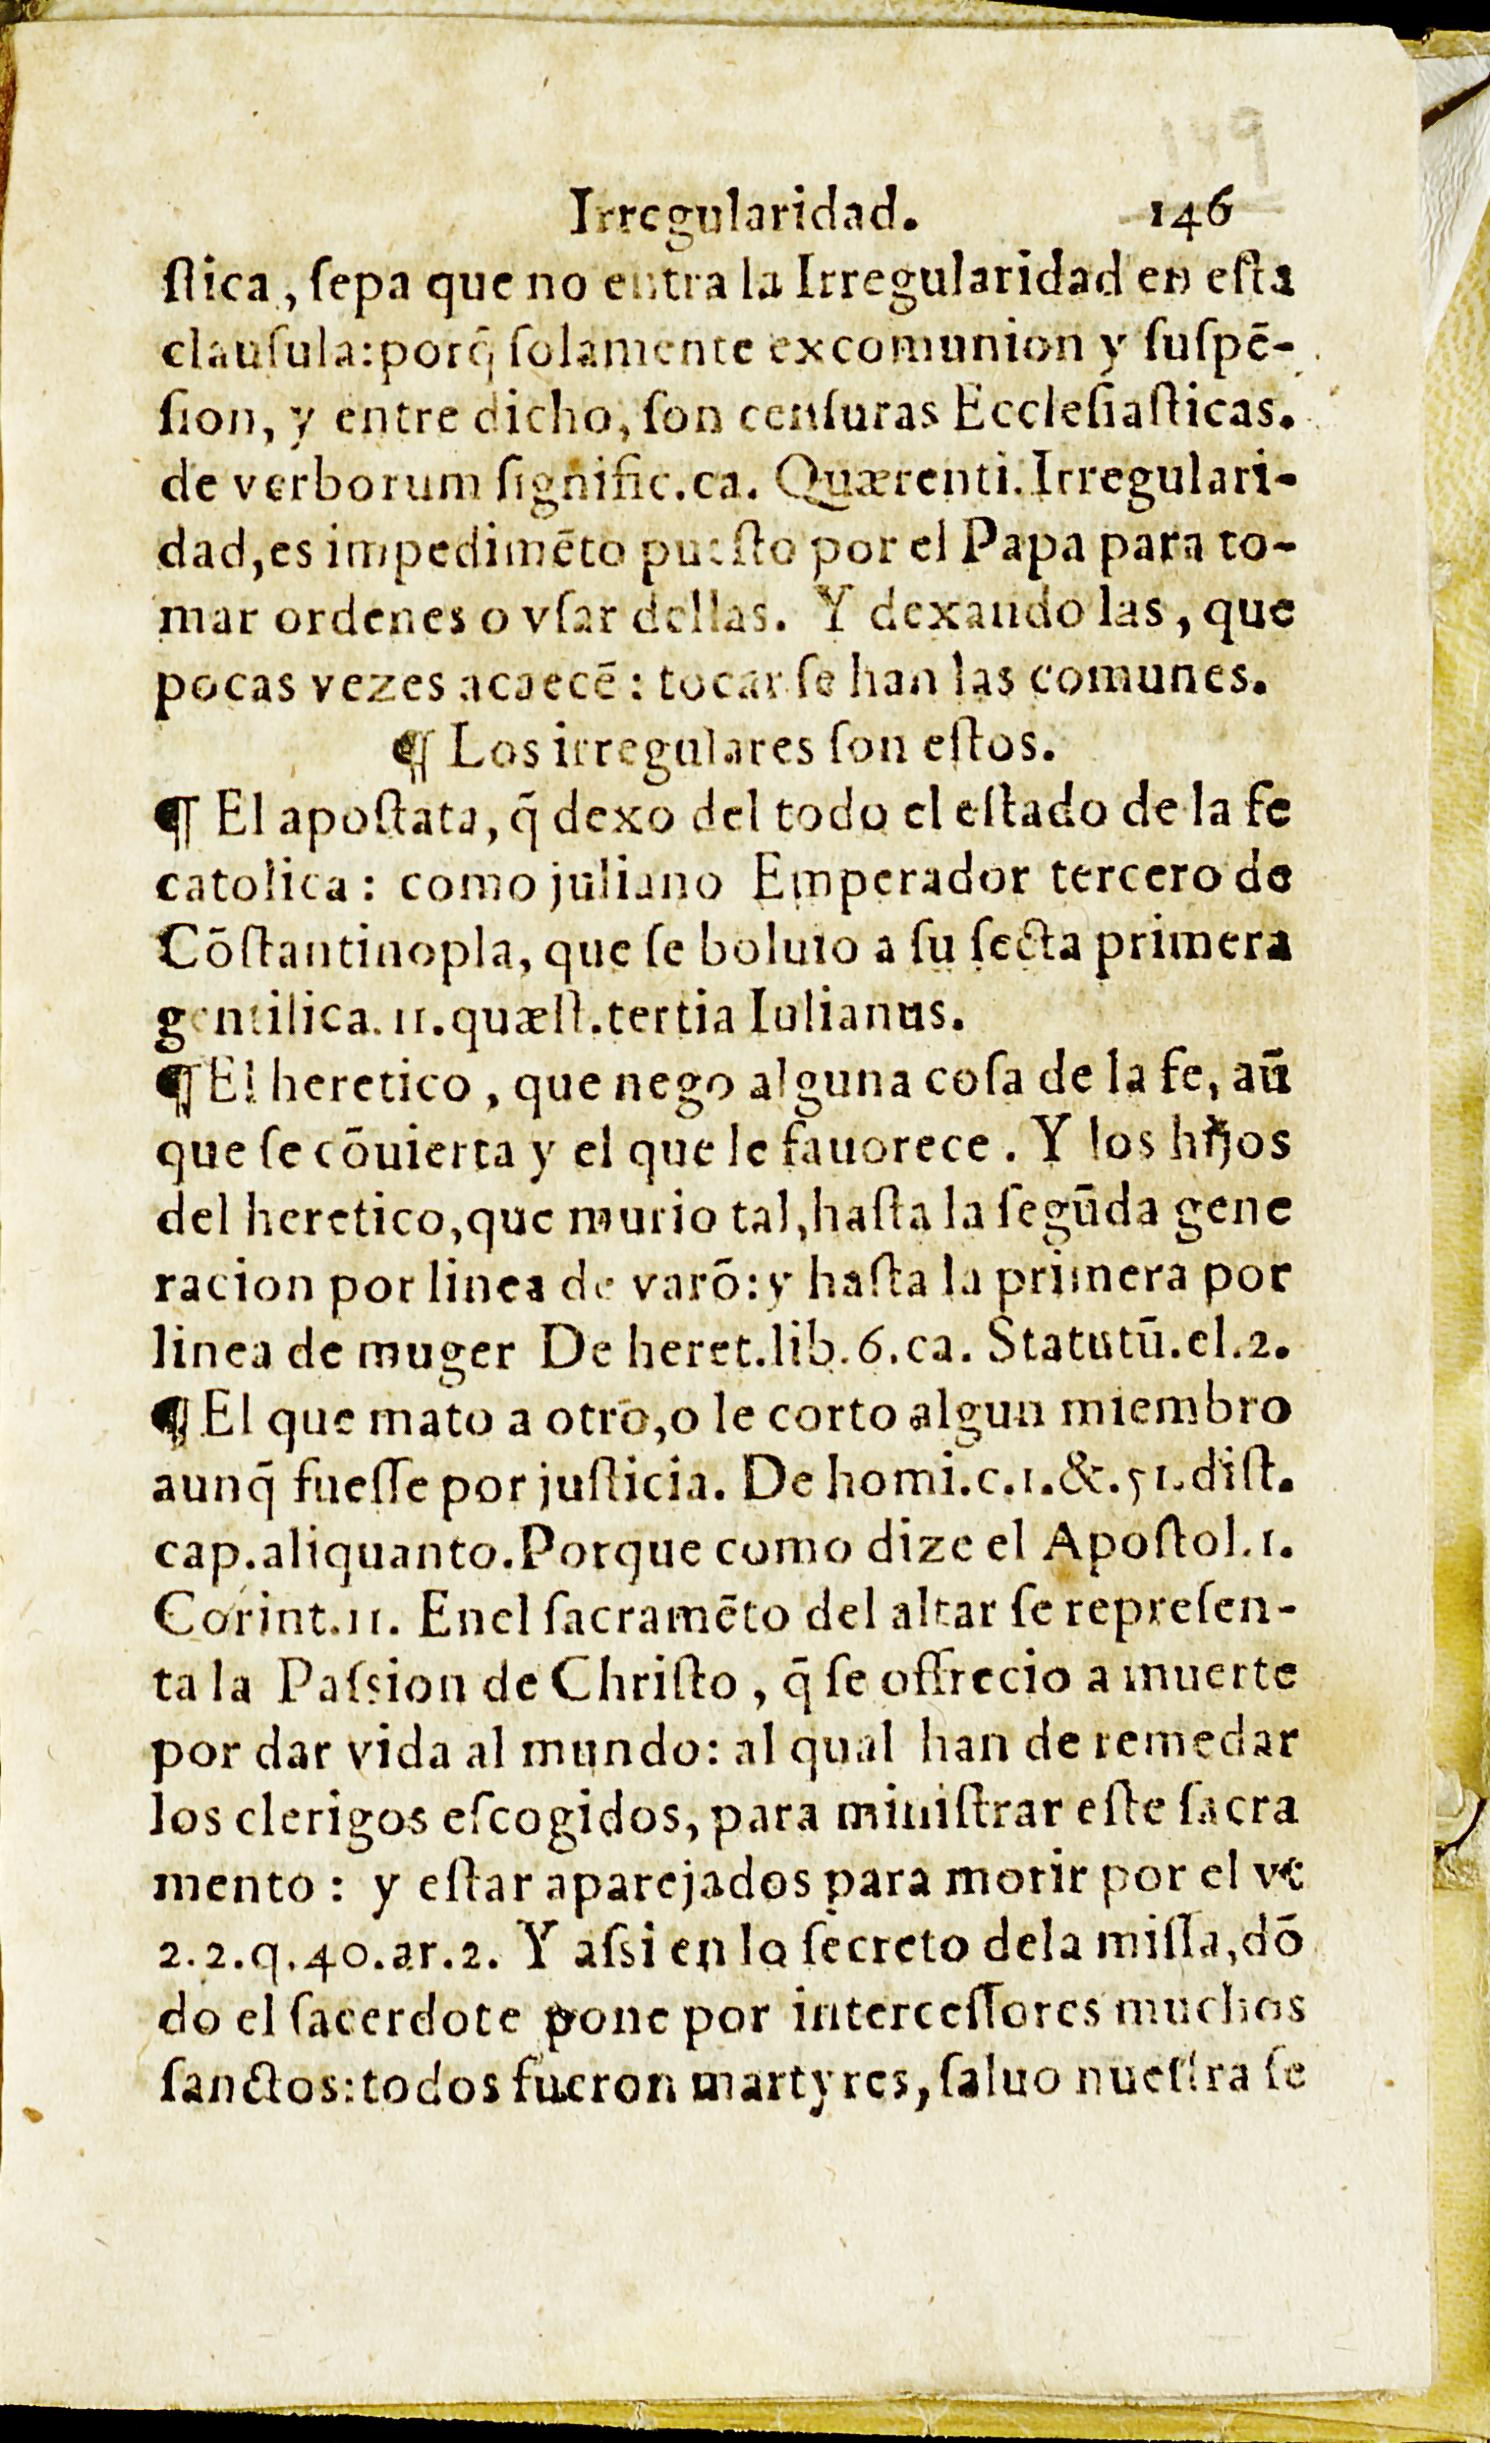 Irregularidad. 146
ſtica, ſepa que no entra la Irregularidad en eſta
clauſula:porq̃ ſolamente excomunion y ſuſpẽ-
ſion, y entre dicho, ſon cenſuras Eccleſiaſticas.
de verborum ſignific.ca. Quærenti. Irregulari-
dad,es impedimẽto pueſto por el Papa para to-
mar ordenes o vſar dellas. Y dexando las, que
pocas vezes acaecẽ: tocar ſe han las comunes.
¶ Los irregulares ſon eſtos.
¶ El apoſtata, q̃ dexo del todo el eſtado de la fe
catolica: como juliano Emperador tercero de
Cõſtantinopla, que ſe boluio a ſu ſecta primera
gentilica. 11.quæſt.tertia Iulianus.
¶ El heretico, que nego alguna coſa de la fe, aũ
que ſe cõuierta y el que le fauorece. Y los hijos
del heretico,que murio tal,haſta la ſegũda gene
racion por linea de varõ:y haſta la primera por
linea de muger De heret.lib.6.ca. Statutũ.el.2.
¶ El que mato a otro,o le corto algun miembro
aunq̃ fueſſe por juſticia. De homi.c.1.&.51.diſt.
cap.aliquanto.Porque como dize el Apoſtol.1.
Corint.11. Enel ſacramẽto del altar ſe repreſen-
ta la Paſsion de Chriſto, q̃ ſe offrecio a muerte
por dar vida al mundo: al qual han de remedar
los clerigos eſcogidos, para miniſtrar eſte ſacra
mento: y eſtar aparejados para morir por el vt
2.2.q.40.ar.2. Y aſsi en lo ſecreto dela miſſa,dõ
do el ſacerdote pone por interceſſores muchos
ſanctos:todos fueron martyres, ſaluo nueſtra ſe